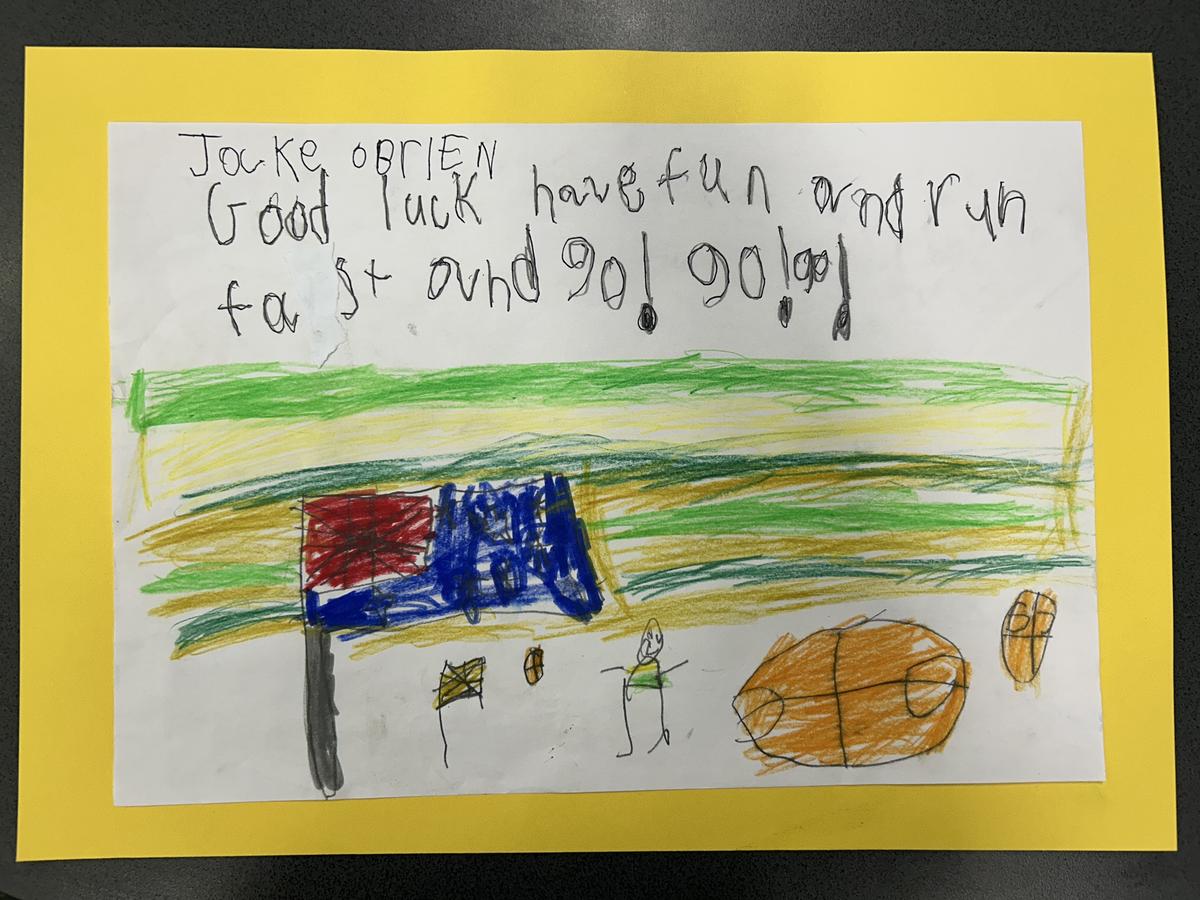 JaKe oBrIEN
Good luck have fun and run
fast and go! go! go!